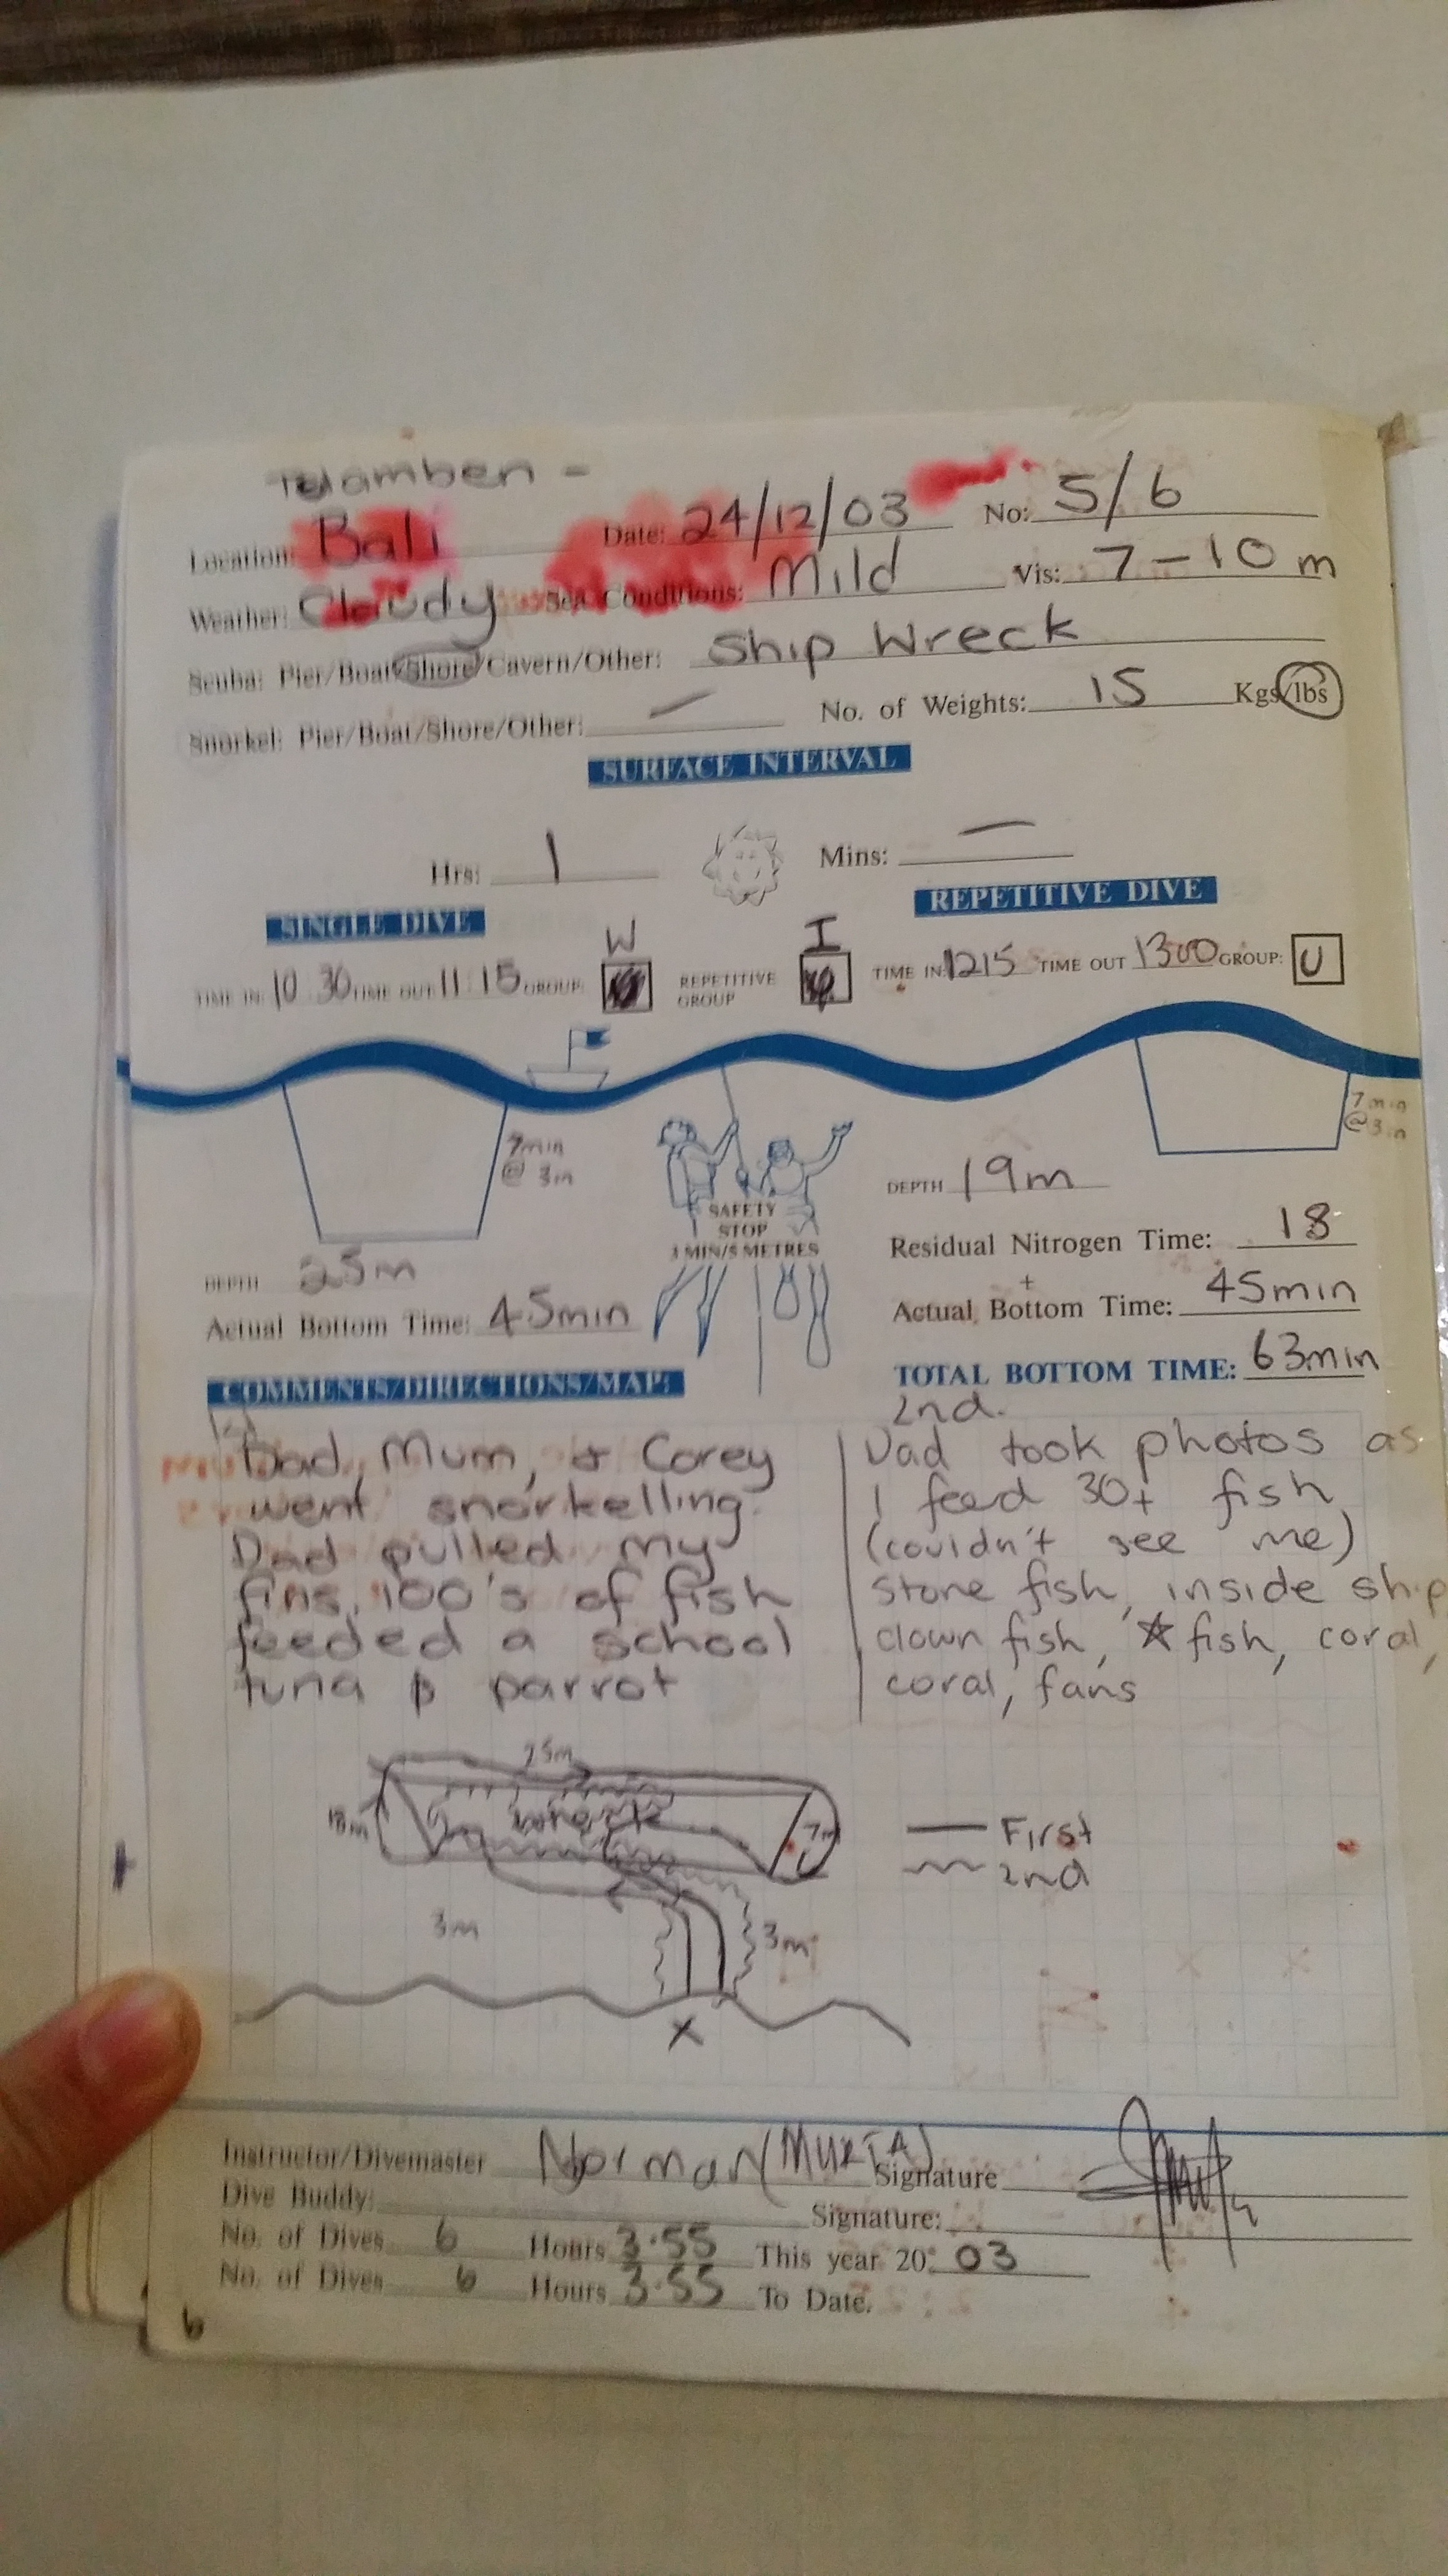 Tulamben -
Location: Bali Date: 24/12/03 No: 5/6
Weather: Cloudy Sea Conditions: Mild Vis: 7-10m
Scuba: Pier/Boat/Shore/Cavern/Other: Ship Wreck
Snorkel: Pier/Boat/Shore/Other: — No. of Weights: 15 Kgs/lbs
SURFACE INTERVAL
Hrs: 1 Mins: —
SINGLE DIVE REPETITIVE DIVE
W I
TIME IN: 10 30 TIME OUT: 11 15 GROUP: REPETITIVE GROUP TIME IN: 1215 TIME OUT 1300 GROUP: U
7min
@ 3m
7min
@ 3m
SAFETY
STOP
3 MIN/5 METRES
DEPTH 25m
Actual Bottom Time: 45min
DEPTH 19m
Residual Nitrogen Time: 18
+
Actual Bottom Time: 45min
TOTAL BOTTOM TIME: 63min
COMMENTS/DIRECTIONS/MAP:
Dad, Mum, & Corey
went snorkelling.
Dad pulled my
fins, 100's of fish
feeded a school
tuna & parrot
2nd.
Dad took photos as
I feed 30+ fish
(couldn't see me)
stone fish, inside ship
clown fish, ★ fish, coral,
coral, fans
25m
18m wreck 7m
First
2nd
3m 3m
X
Instructor/Divemaster Norman (MURTA) Signature
Dive Buddy: Signature:
No. of Dives 6 Hours 3.55 This year 20: 03
No. of Dives 6 Hours 3.55 To Date.
6